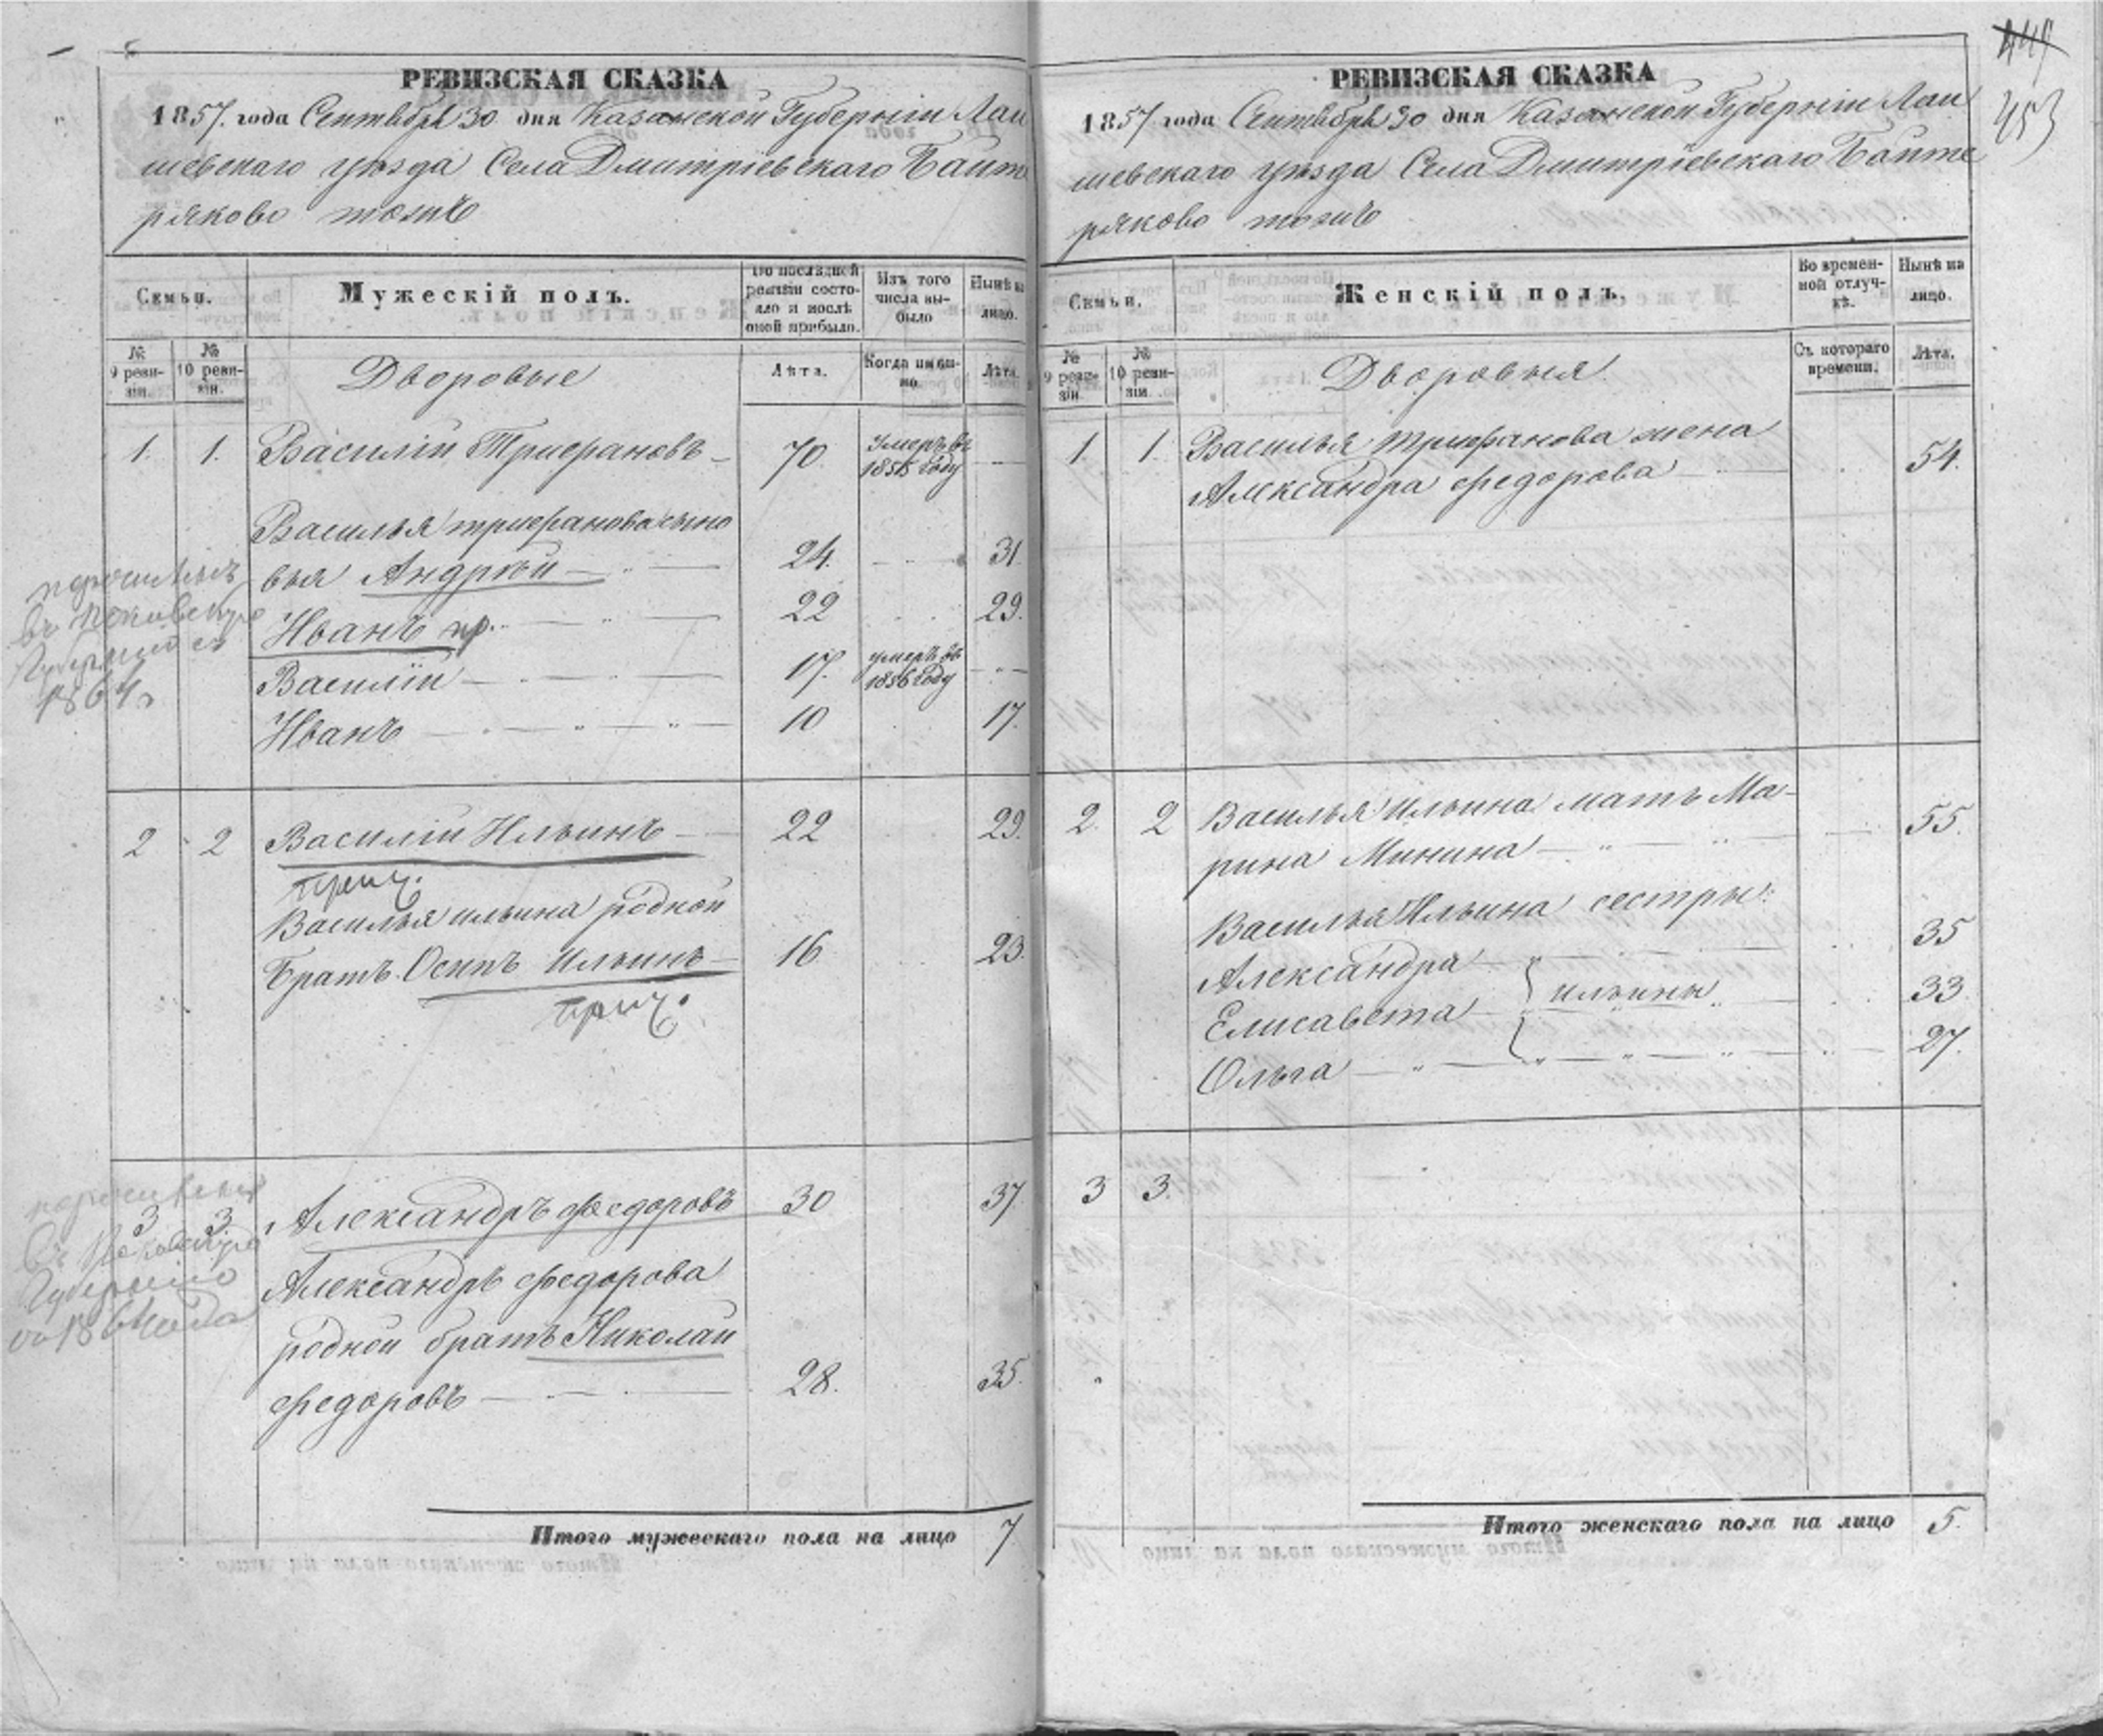 РЕВИЗСКАЯ СКАЗКА
1857. года Сентября 30 дня Казанской Губерніи Лаи
шевскаго уѣзда Села Дмитріевскаго Байте
ряково тожъ
Семьи.
Мужескій полъ.
По послѣдней ревизіи состояло и послѣ оной прибыло.
Изъ того числа выбыло
Нынѣ на лицо.
№ 9 ревизіи.
№ 10 ревизіи.
Дворовые
Лѣта.
Когда именно.
Лѣта.
1. 1. Василій Трифановъ 70 Умеръ въ 1855 году
Василья Трифанова сыно
вья Андрей 24. 31
Иванъ пр. 22 29.
Василій 17. умеръ въ 1856 году
Иванъ 10 17.
въ
Губернію
1864
2 2 Василій Ильинъ 22 29.
Василья Ильина родной
Братъ Осипъ Ильинъ 16 23.
3 3. Александръ Федоровъ 30 37.
Александръ Федорова
родной братъ Николай
Федоровъ 28. 35.
въ
Губернію
1864 года
Итого мужескаго пола на лицо 7.
449
453
РЕВИЗСКАЯ СКАЗКА
1857 года Сентября 30 дня Казанской Губерніи Лаи
шевскаго уѣзда Села Дмитріевскаго Байте
ряково тожъ
Семьи.
Женскій полъ.
Во временной отлучкѣ.
Нынѣ на лицо.
№ 9 ревизіи
№ 10 ревизіи.
Дворовыя
Съ котораго времени.
Лѣта.
1. 1. Василья Трифанова жена
Александра Федорова 54.
2. 2 Василья Ильина мать Ма-
рина Минина 55.
Василья Ильина сестры:
Александра 35
Елисавета Ильины 33
Ольга 27.
3 3.
Итого женскаго пола на лицо 5.